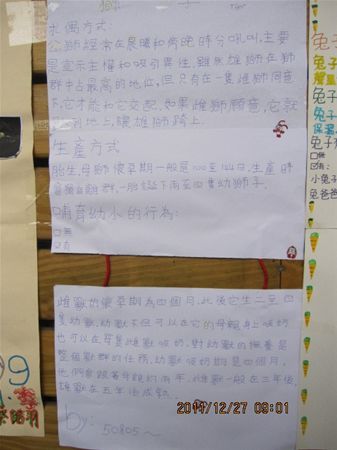 獅 子
求偶方式:
公獅經常在晨曦和傍晚時分吼叫,主要
是宣示主權和吸引異性,雖然雄獅在獅
群中占最高的地位,但只有在一隻雌獅同意
下,它才能和它交配,如果雌獅願意,它就
到地上,讓雄獅騎上。
生產方式
胎生,母獅懷孕期一般是100至114日,生產時
會離開獅群,一胎誕下兩至四隻幼獅子。
哺育幼小的行為:
□無
□有
雌獸的懷孕期為四個月,此後它生二至四
隻幼獸,幼獸不但可以在它的母親身上吸奶
也可以在每隻雌獸吸奶,對幼獸的撫養是
整個獸群的任務,幼獸吸奶期是四個月,
他們會跟著母親約兩年,雌獸一般在三年後,
雄獸在五年後成熟。
by:
50805~
2011/12/27 09:01
兔子
兔子
兔子
□無
□有:
小兔子
兔爸爸